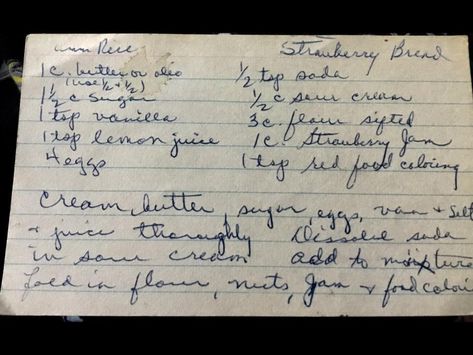 Ann Rice Strawberry Bread
1 c. butter or oleo 1/2 tsp soda
(use 1/2 + 1/2)
1 1/2 c Sugar 1/2 c sour cream
1 tsp vanilla 3 c. flour sifted
1 tsp lemon juice 1 c. Strawberry Jam
4 eggs 1 tsp red food coloring
Cream butter, sugar, eggs, van + salt
+ juice thoroughly Dissolve soda
in sour cream add to mixture
fold in flour, nuts, Jam + food colori